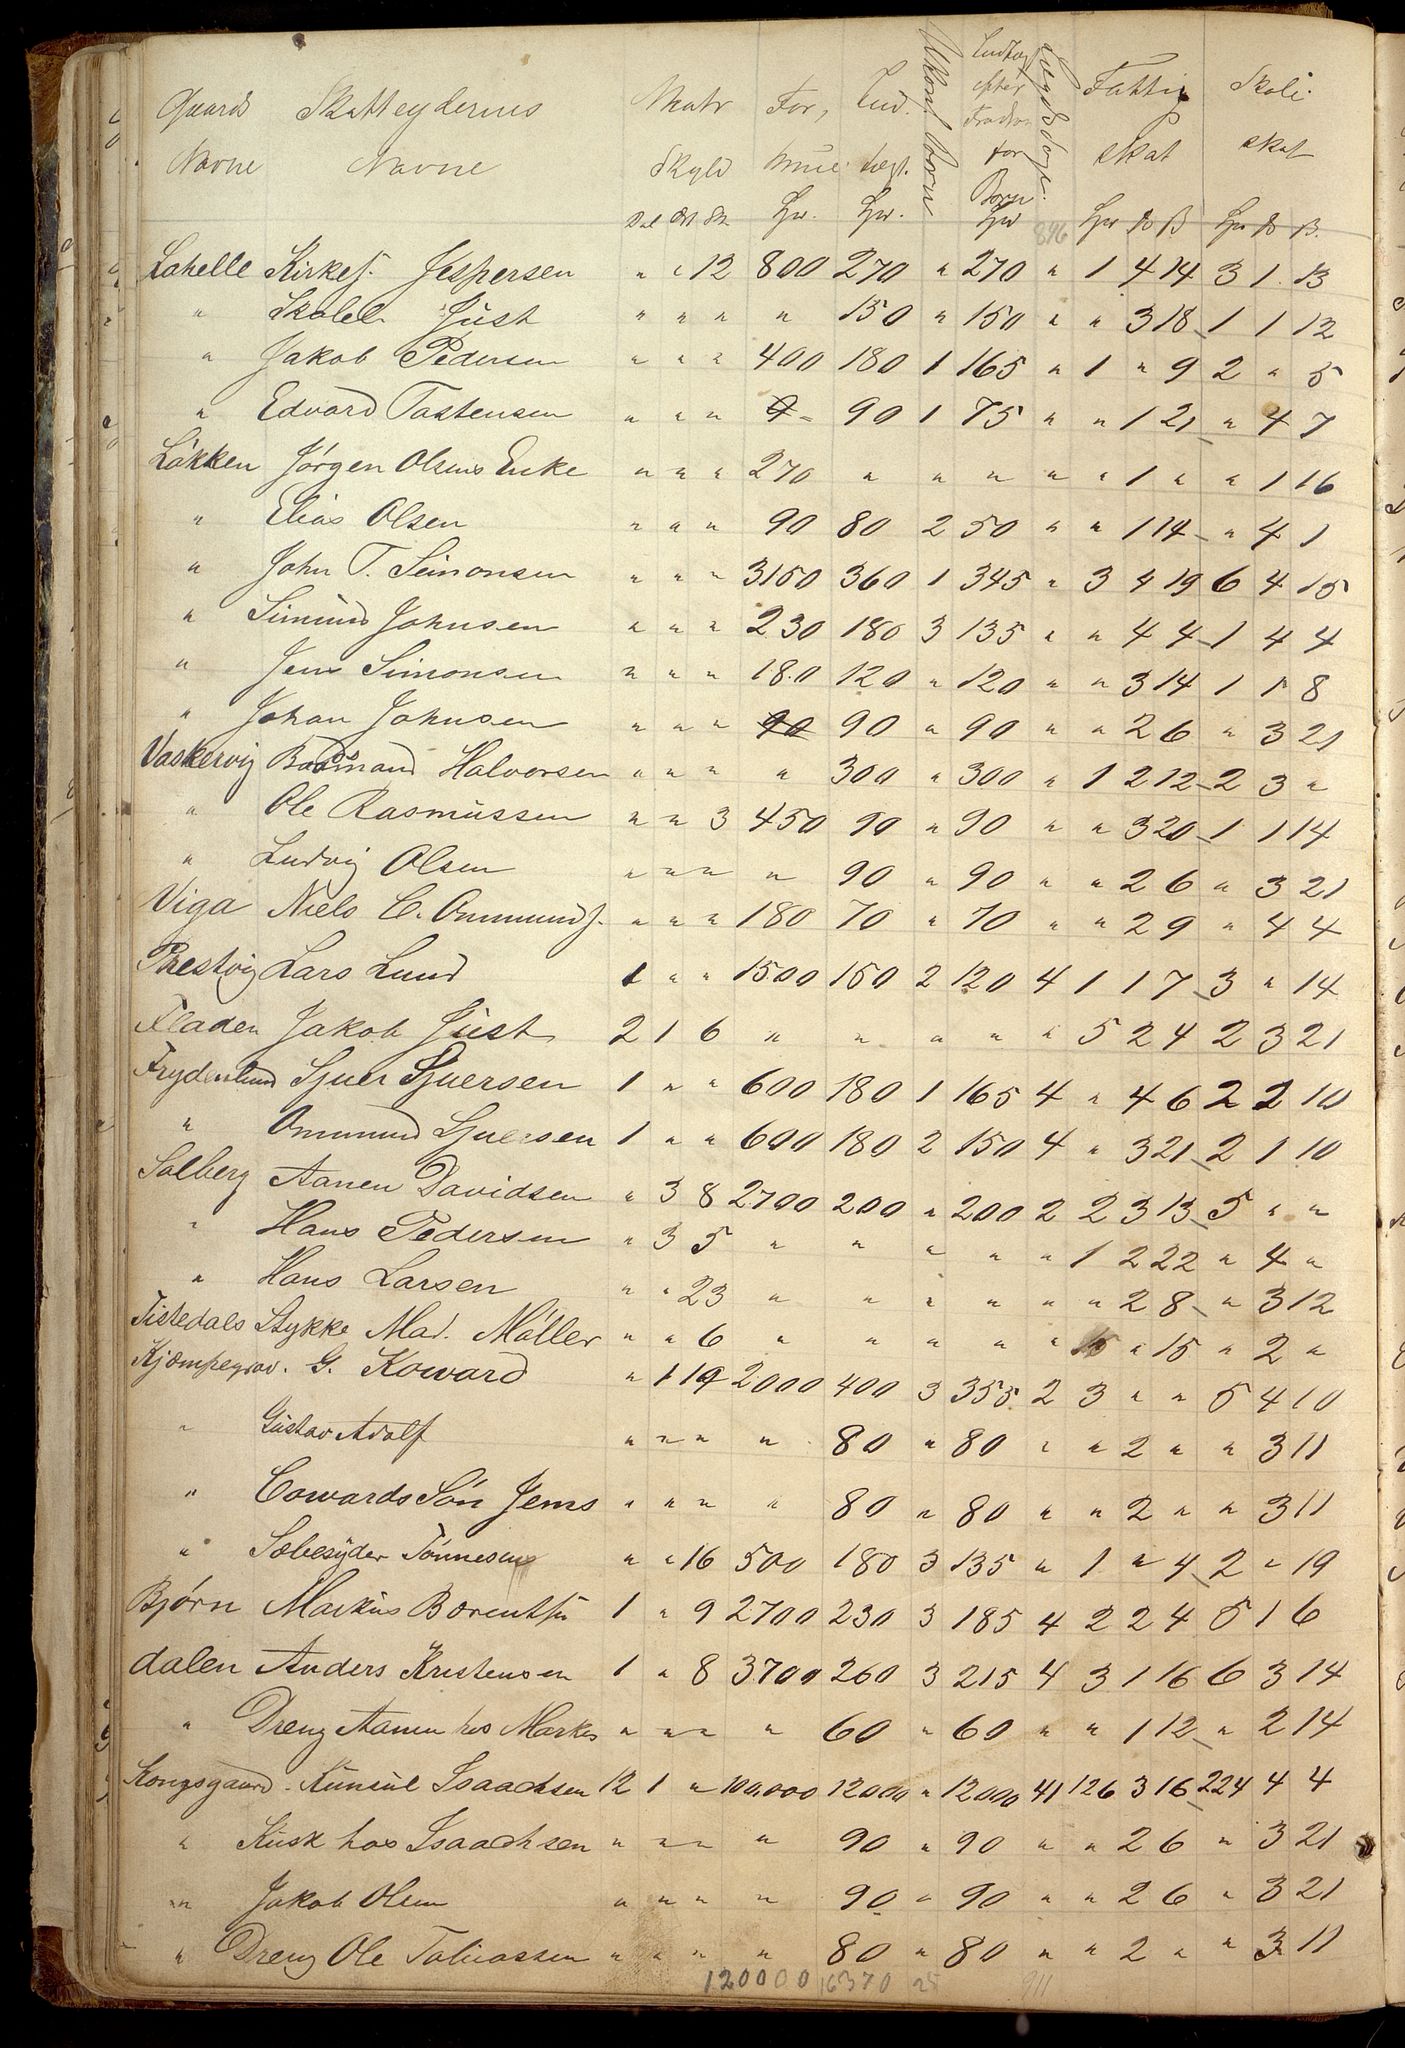 Gaards Skatteydernes Matr For, Ind. Ukonf. Born Indtægt efter Fradrag for Born Lægdsdage. Fattig Skole
Navne Navne Skyld mue tægt. skat skat
Dal Ort Sk Spd. Spd. Spd 896 Spd ß Spd ß
Lahelle Kirkes. Jespersen " " 12 800 270 " 270 " 1 4 14 3 1 13
" Skolel. Just " " " " 150 " 150 " " 3 18 1 1 12
" Jakob Pedersen " " " 400 180 1 165 " 1 " 9 2 " 5
" Edvard Tastensen " " " 90 1 75 " " 1 21 " 4 7
Løkken Jørgen Olsens Enke " " " 270 " " " " " 1 " " 1 16
" Elias Olsen " " " 90 80 2 50 " " 1 14 " 4 1
" John T. Simonsen " " " 3150 360 1 345 " 3 4 19 6 4 15
" Simund Johnsen " " " 230 180 3 135 " " 4 4 1 4 4
" Jens Simonsen " " " 180 120 " 120 " " 3 14 1 1 8
" Johan Johnsen " " " 90 90 " 90 " " 2 6 " 3 21
Vaskervig Baadmand Halvorsen " " " " 300 " 300 " 1 2 12 2 3 "
" Ole Rasmussen " " 3 450 90 " 90 " " 3 20 1 1 14
" Ludvig Olsen " " " " 90 " 90 " " 2 6 " 3 21
Viga Niels C. Ommunds. " " " 180 70 " 70 " " 2 9 " 4 4
Prestvig Lars Lund 1 " " 1500 150 2 120 4 1 1 7 3 " 14
Fladen Jakob Just 2 1 6 " " " " " 5 2 4 2 3 21
Frydenlund Sjuer Sjuersen 1 " " 600 180 1 165 4 " 4 6 2 2 10
" Ommund Sjuersen 1 " " 600 180 2 150 4 " 3 21 2 1 10
Solberg Aanen Davidsen " 3 8 2700 200 " 200 2 2 3 13 5 " "
" Hans Pedersen " 3 5 " " " " " 1 2 22 " 4 "
" Hans Larsen " " 23 " " " " " " 2 8 " 3 12
Tistedals Stykke Mad. Møller " " 6 " " " " " " 15 " 2 "
Kjæmpegrav. G. Koward " 1 19 2000 400 3 355 2 3 " " 5 4 10
" Gustav Adolf " " " " 80 " 80 " " 2 " " 3 11
" Cowards Søn Jens " " " " 80 " 80 " " 2 " " 3 11
" Sæbesyder Tønnesen " " 16 500 180 3 135 " 1 " 4 2 " 19
Bjørn Markus Bærentsen 1 " 9 2700 230 3 185 4 2 2 4 5 1 6
dalen Anders Kristensen 1 " 8 3700 260 3 215 4 3 1 16 6 3 14
" Dreng Aanen hos Markus " " " " 60 " 60 " " 1 12 " 2 14
Kongsgaard. Kunsul Isaachsen 12 1 " 100,000 12000 " 12000 41 126 3 16 224 4 4
" Kusk hos Isaachsen " " " " 90 " 90 " " 2 6 " 3 21
" Jakob Olsen " " " " 90 " 90 " " 2 6 " 3 21
" Dreng Ole Tobiassen " " " " 80 " 80 " " 2 " " 3 11
120000 16370 25 911